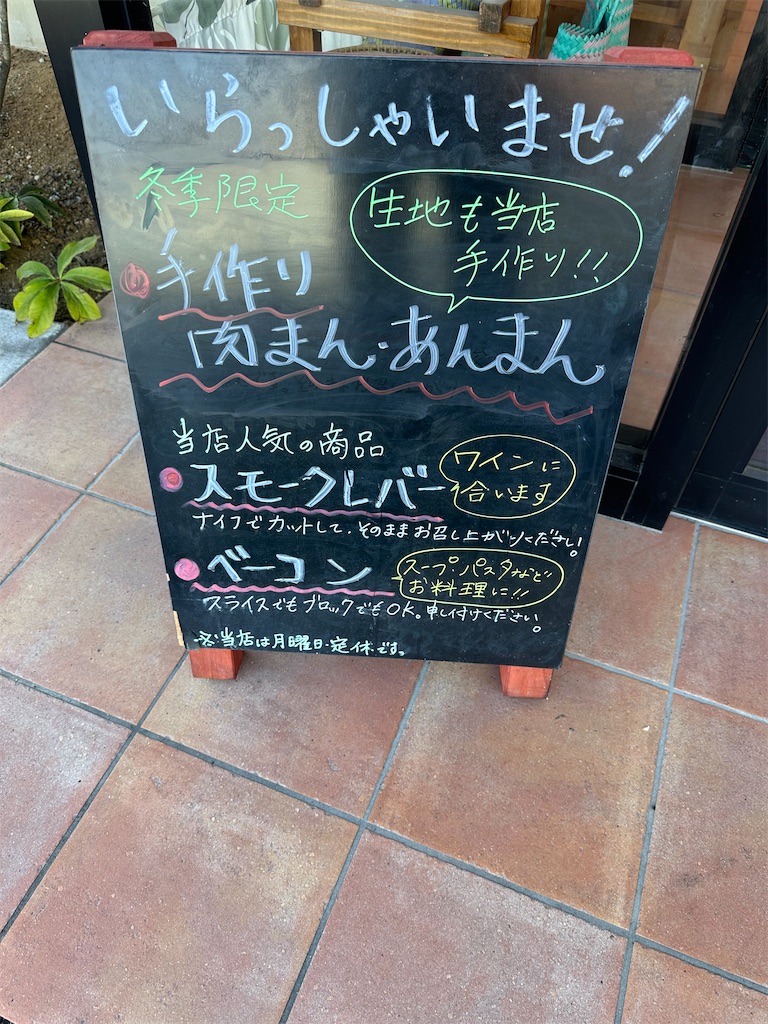 いらっしゃいませ!
冬季限定
生地も当店
手作り!!
手作り
肉まん・あんまん
当店人気の商品
スモークレバー
ワインに
合います
ナイフでカットして、そのままお召し上がりください。
ベーコン
スープ・パスタなど
お料理に!!
スライスでもブロックでもOK。申し付けください。
※当店は月曜日定休です。